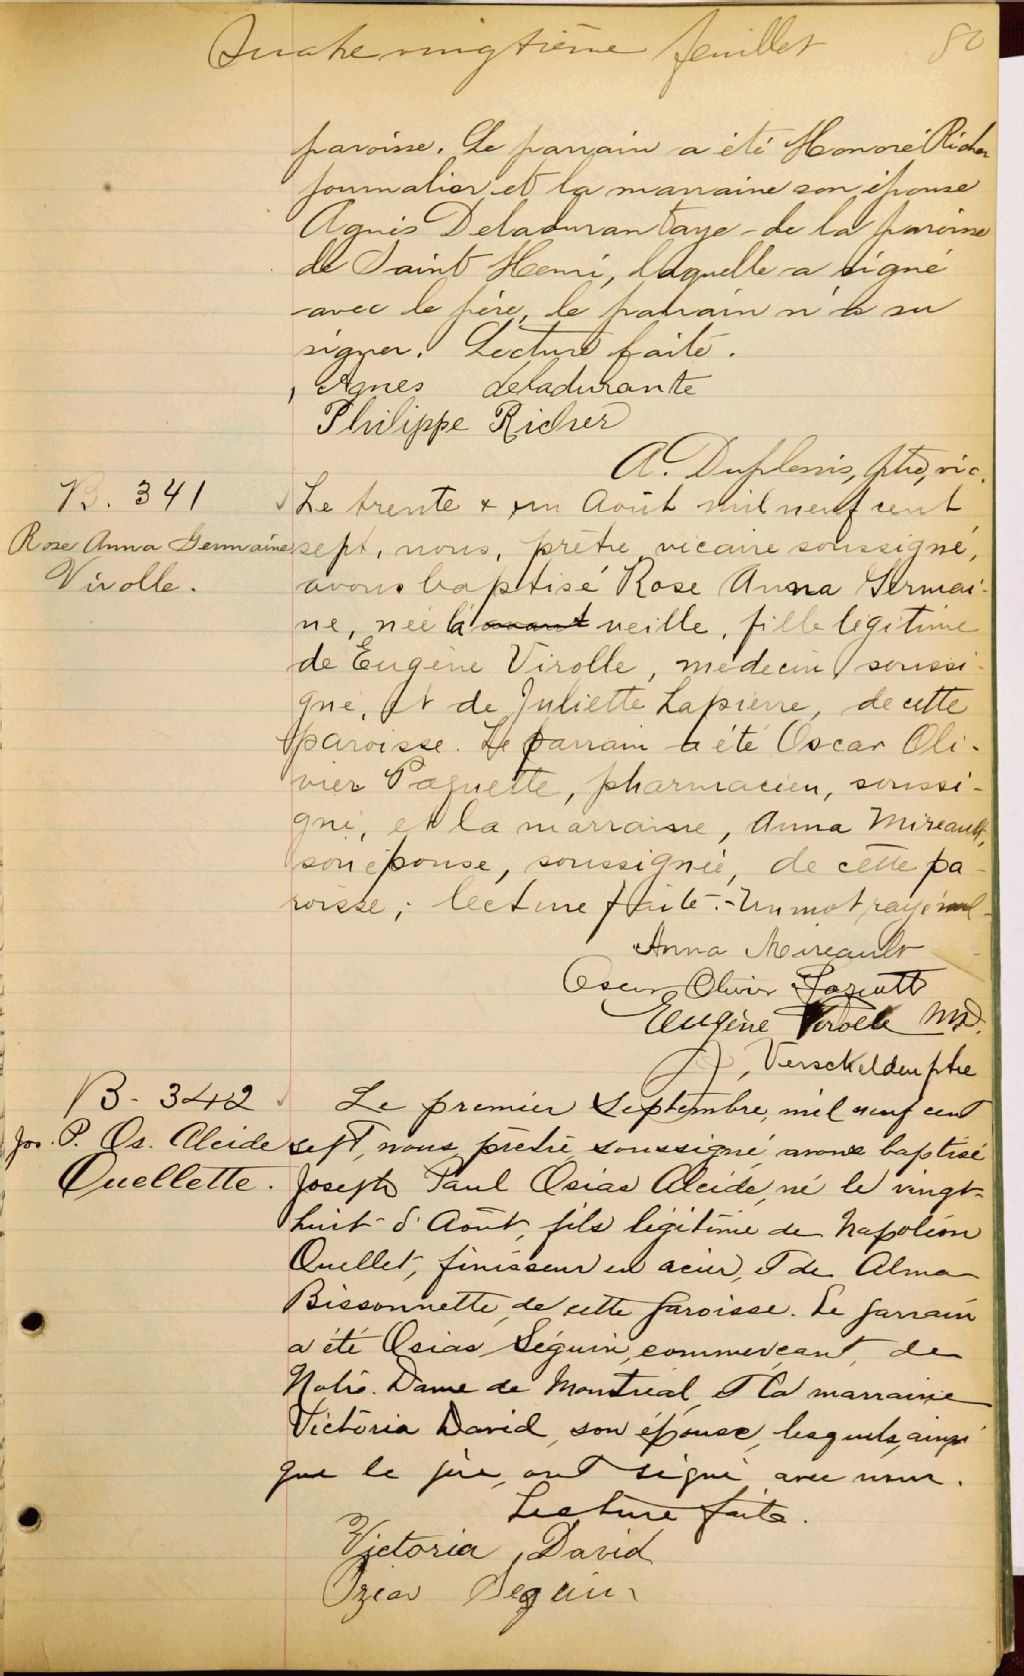 Quatre vingtième feuillet 80
paroisse. Le parrain a été Honoré Richer
journalier et la marraine son épouse
Agnès Deladurantaye de la paroisse
de Saint Henri, laquelle a signé
avec le père, le parrain n'a su
signer. Lecture faite.
Agnes deladurante
Philippe Richer
A. Duplessis, ptre, vic.
B. 341
Rose Anna Germaine
Virolle.
Le trente & un Août mil neuf cent
sept, nous, prêtre vicaire soussigné,
avons baptisé Rose Anna Germai-
ne, née la avant veille, fille légitime
de Eugène Virolle, médecin soussi-
gné, et de Juliette Lapierre, de cette
paroisse. Le parrain a été Oscar Oli-
vier Paquette, pharmacien, soussi-
gné, et la marraine, Anna Mireault,
son épouse, soussignée, de cette pa-
roisse; lecture faite. - Un mot rayé nul -
Anna Mireault
Oscar Olivier Paquette
Eugène Virolle MD.
J, Verschelden ptre
B. 342
Jos. P. Os. Alcide
Ouellette.
Le premier Septembre, mil neuf cent
sept, nous prêtre soussigné, avons baptisé
Joseph Paul Osias Alcide, né le vingt-
huit d'Août, fils légitime de Napoléon
Ouellet, finisseur en acier, et de Alma
Bissonnette, de cette paroisse. Le parrain
a été Osias Séguin, commerçant, de
Notre-Dame de Montréal, et la marraine
Victoria David, son épouse, lesquels, ainsi
que le père, ont signé avec nous.
Lecture faite.
Victoria David
Ozias Seguin